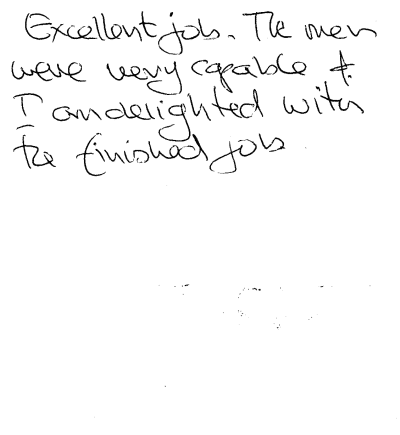 Excellent job. The men
were very capable &
I am delighted with
the finished job